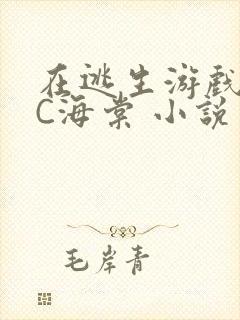 在逃生游戏
C海棠 小説
毛岸青